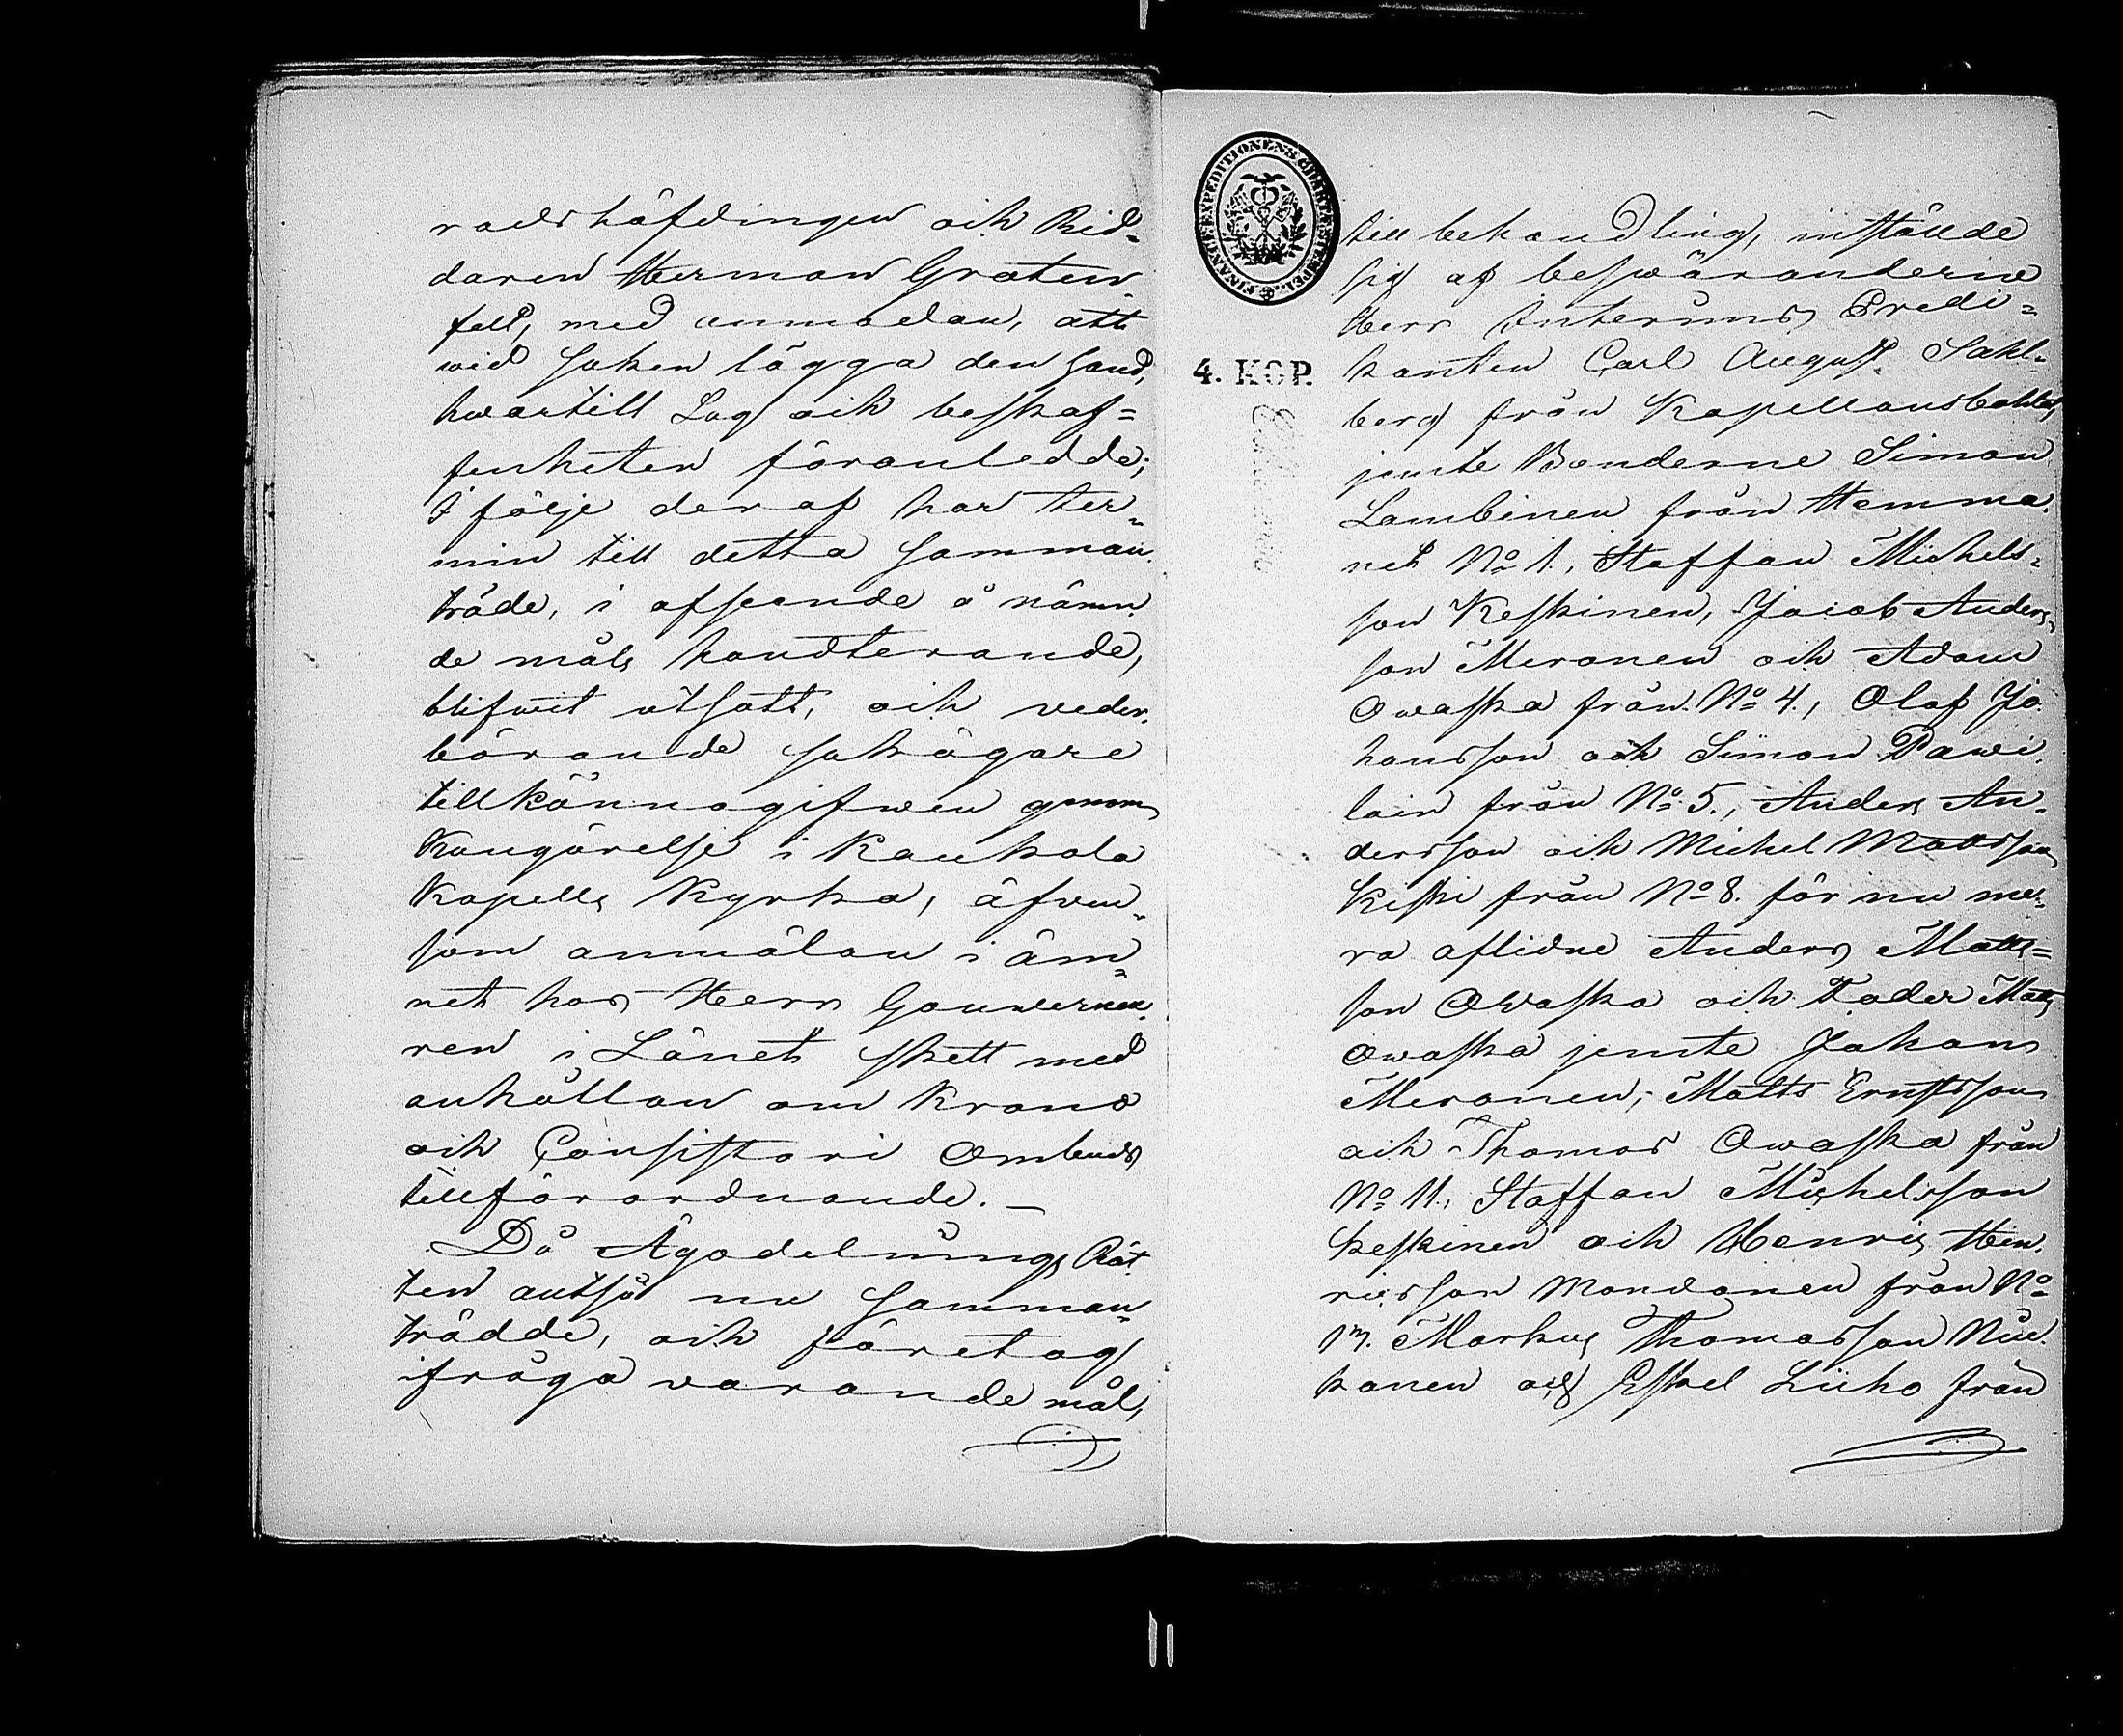 radshöfdingen och Rid-
daren Herman Groten-
felt, med anmodan, att
wid saken lägga den hand,
hwartill Lag och beskaf=
fenheten föranledde;
I följe deraf har ter-
min till detta samman-
träde, i afseende å nämn-
de måls handterande,
blifwit utsatt, och veder-
börande sakägare
tillkännagifwen genom
Kungörelse i Kaukola
Kapells Kyrka, äfven-
som anmälan i äm-
net hos Herr Gouverneu-
ren i Länet skett med
anhållan om Krono
och Consistorii Ombuds
tillförordnande. —
Då Ägodelnings Rät-
ten altså nu samman-
trädde, och företog
ifråga varande mål,
FINANCE-EXPEDITIONENS CHARTÆ STEMPEL.
4. KOP.
till behandling, instälde
sig af beswäranderne
Herr Interims Predi=
kanten Carl August Sahl-
berg från Kapellansbohlet,
jemte Bönderne Simon
Lambinen från Hemma-
net No 1., Staffan Michels-
son Keskinen, Jacob Anders-
son Meronen och Adam
Owaska från No 4., Olaf Jo-
hansson och Simon Pawi-
lain från No 5., Anders An-
dersson och Michel Mattsson
Kiski från No 8. för nu me-
ra aflidne Anders Matts=
son Owaska och Fader Matts
Owaska jemte Johan
Meronen, Matts Ernstsson
och Thomas Owaska från
No 11., Staffan Michelsson
Keskinen och Henric Hen-
ricsson Mondonen från No
17. Markus Thomasson Niu-
kanen och Eskel Liiho från